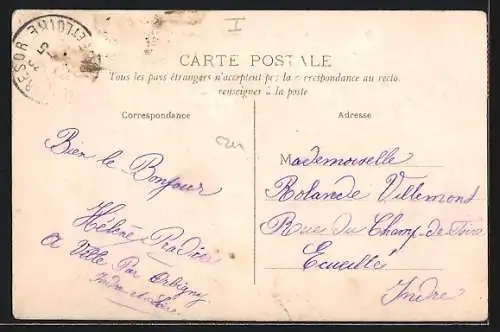 I
RESOR
ET LOIRE
CARTE POSTALE
Tous les pays étrangers n'acceptent pas la correspondance au recto.
renseigner à la poste
Correspondance
Adresse
Bien le Bonjour
Hélène Pradier
à Ville
Par Orbigny
Indre et Loire
Mademoiselle
Rolande Villemont
Rue du Champ-de-Foire
Ecueillé
Indre